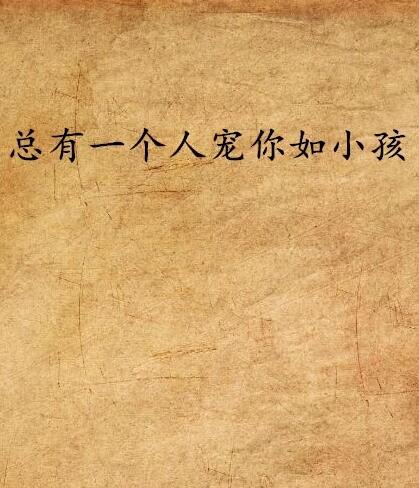 总有一个人宠你如小孩